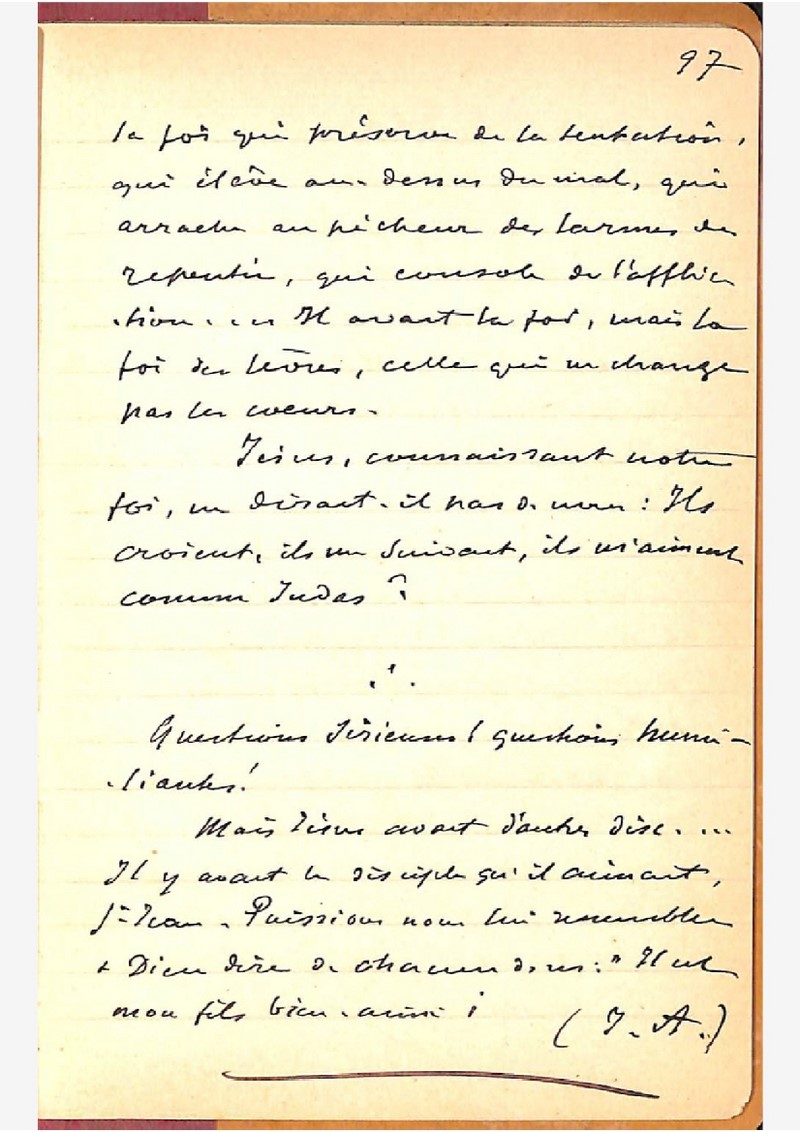 97
la foi qui préserve de la tentation,
qui élève au-dessus du mal, qui
arrache au pécheur des larmes de
repentir, qui console de l'afflic
-tion.... Il avait la foi, mais la
foi des lèvres, celle qui ne change
pas les coeurs.
Jésus, connaissant notre
foi, ne dirait-il pas de nous : Ils
croient, ils me suivent, ils m'aiment
comme Judas ?
Questions sérieuses ! questions humi-
-liantes !
Mais Jésus avait d'autres disc....
Il y avait le disciple qu'il aimait,
St Jean. Puissions nous lui ressembler
+ Dieu dire de chacun d. ns : " Il est
mon fils bien-aimé !
( J. A. )